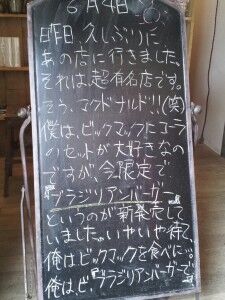 6月4日
昨日、久しぶりに、
あの店に行きました。
それは、超有名店です。
そう、マクドナルド!!(笑)
僕は、ビックマックにコーラ
のセットが大好きなの
ですが、今限定で
『ブラジリアンバーガー』
というのが新発売して
いました。いやいや待て
俺はビックマックを食べに…。
俺はビ、『ブラジリアンバーガーで』